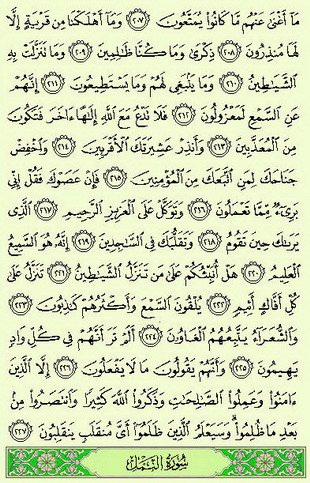 مَآ أَغْنَىٰ عَنْهُم مَّا كَانُوا۟ يُمَتَّعُونَ ٢٠٧ وَمَآ أَهْلَكْنَا مِن قَرْيَةٍ إِلَّا
لَهَا مُنذِرُونَ ٢٠٨ ذِكْرَىٰ وَمَا كُنَّا ظَٰلِمِينَ ٢٠٩ وَمَا تَنَزَّلَتْ بِهِ
ٱلشَّيَٰطِينُ ٢١٠ وَمَا يَنۢبَغِى لَهُمْ وَمَا يَسْتَطِيعُونَ ٢١١ إِنَّهُمْ
عَنِ ٱلسَّمْعِ لَمَعْزُولُونَ ٢١٢ فَلَا تَدْعُ مَعَ ٱللَّهِ إِلَٰهًا ءَاخَرَ فَتَكُونَ
مِنَ ٱلْمُعَذَّبِينَ ٢١٣ وَأَنذِرْ عَشِيرَتَكَ ٱلْأَقْرَبِينَ ٢١٤ وَٱخْفِضْ
جَنَاحَكَ لِمَنِ ٱتَّبَعَكَ مِنَ ٱلْمُؤْمِنِينَ ٢١٥ فَإِنْ عَصَوْكَ فَقُلْ إِنِّى
بَرِىٓءٌ مِّمَّا تَعْمَلُونَ ٢١٦ وَتَوَكَّلْ عَلَى ٱلْعَزِيزِ ٱلرَّحِيمِ ٢١٧ ٱلَّذِى
يَرَىٰكَ حِينَ تَقُومُ ٢١٨ وَتَقَلُّبَكَ فِى ٱلسَّٰجِدِينَ ٢١٩ إِنَّهُۥ هُوَ ٱلسَّمِيعُ
ٱلْعَلِيمُ ٢٢٠ هَلْ أُنَبِّئُكُمْ عَلَىٰ مَن تَنَزَّلُ ٱلشَّيَٰطِينُ ٢٢١ تَنَزَّلُ عَلَىٰ
كُلِّ أَفَّاكٍ أَثِيمٍ ٢٢٢ يُلْقُونَ ٱلسَّمْعَ وَأَكْثَرُهُمْ كَٰذِبُونَ ٢٢٣
وَٱلشُّعَرَآءُ يَتَّبِعُهُمُ ٱلْغَاوُۥنَ ٢٢٤ أَلَمْ تَرَ أَنَّهُمْ فِى كُلِّ وَادٍ
يَهِيمُونَ ٢٢٥ وَأَنَّهُمْ يَقُولُونَ مَا لَا يَفْعَلُونَ ٢٢٦ إِلَّا ٱلَّذِينَ
ءَامَنُوا۟ وَعَمِلُوا۟ ٱلصَّٰلِحَٰتِ وَذَكَرُوا۟ ٱللَّهَ كَثِيرًا وَٱنتَصَرُوا۟ مِنۢ
بَعْدِ مَا ظُلِمُوا۟ ۗ وَسَيَعْلَمُ ٱلَّذِينَ ظَلَمُوٓا۟ أَىَّ مُنقَلَبٍ يَنقَلِبُونَ ٢٢٧
سُورَةُ النَّمْل